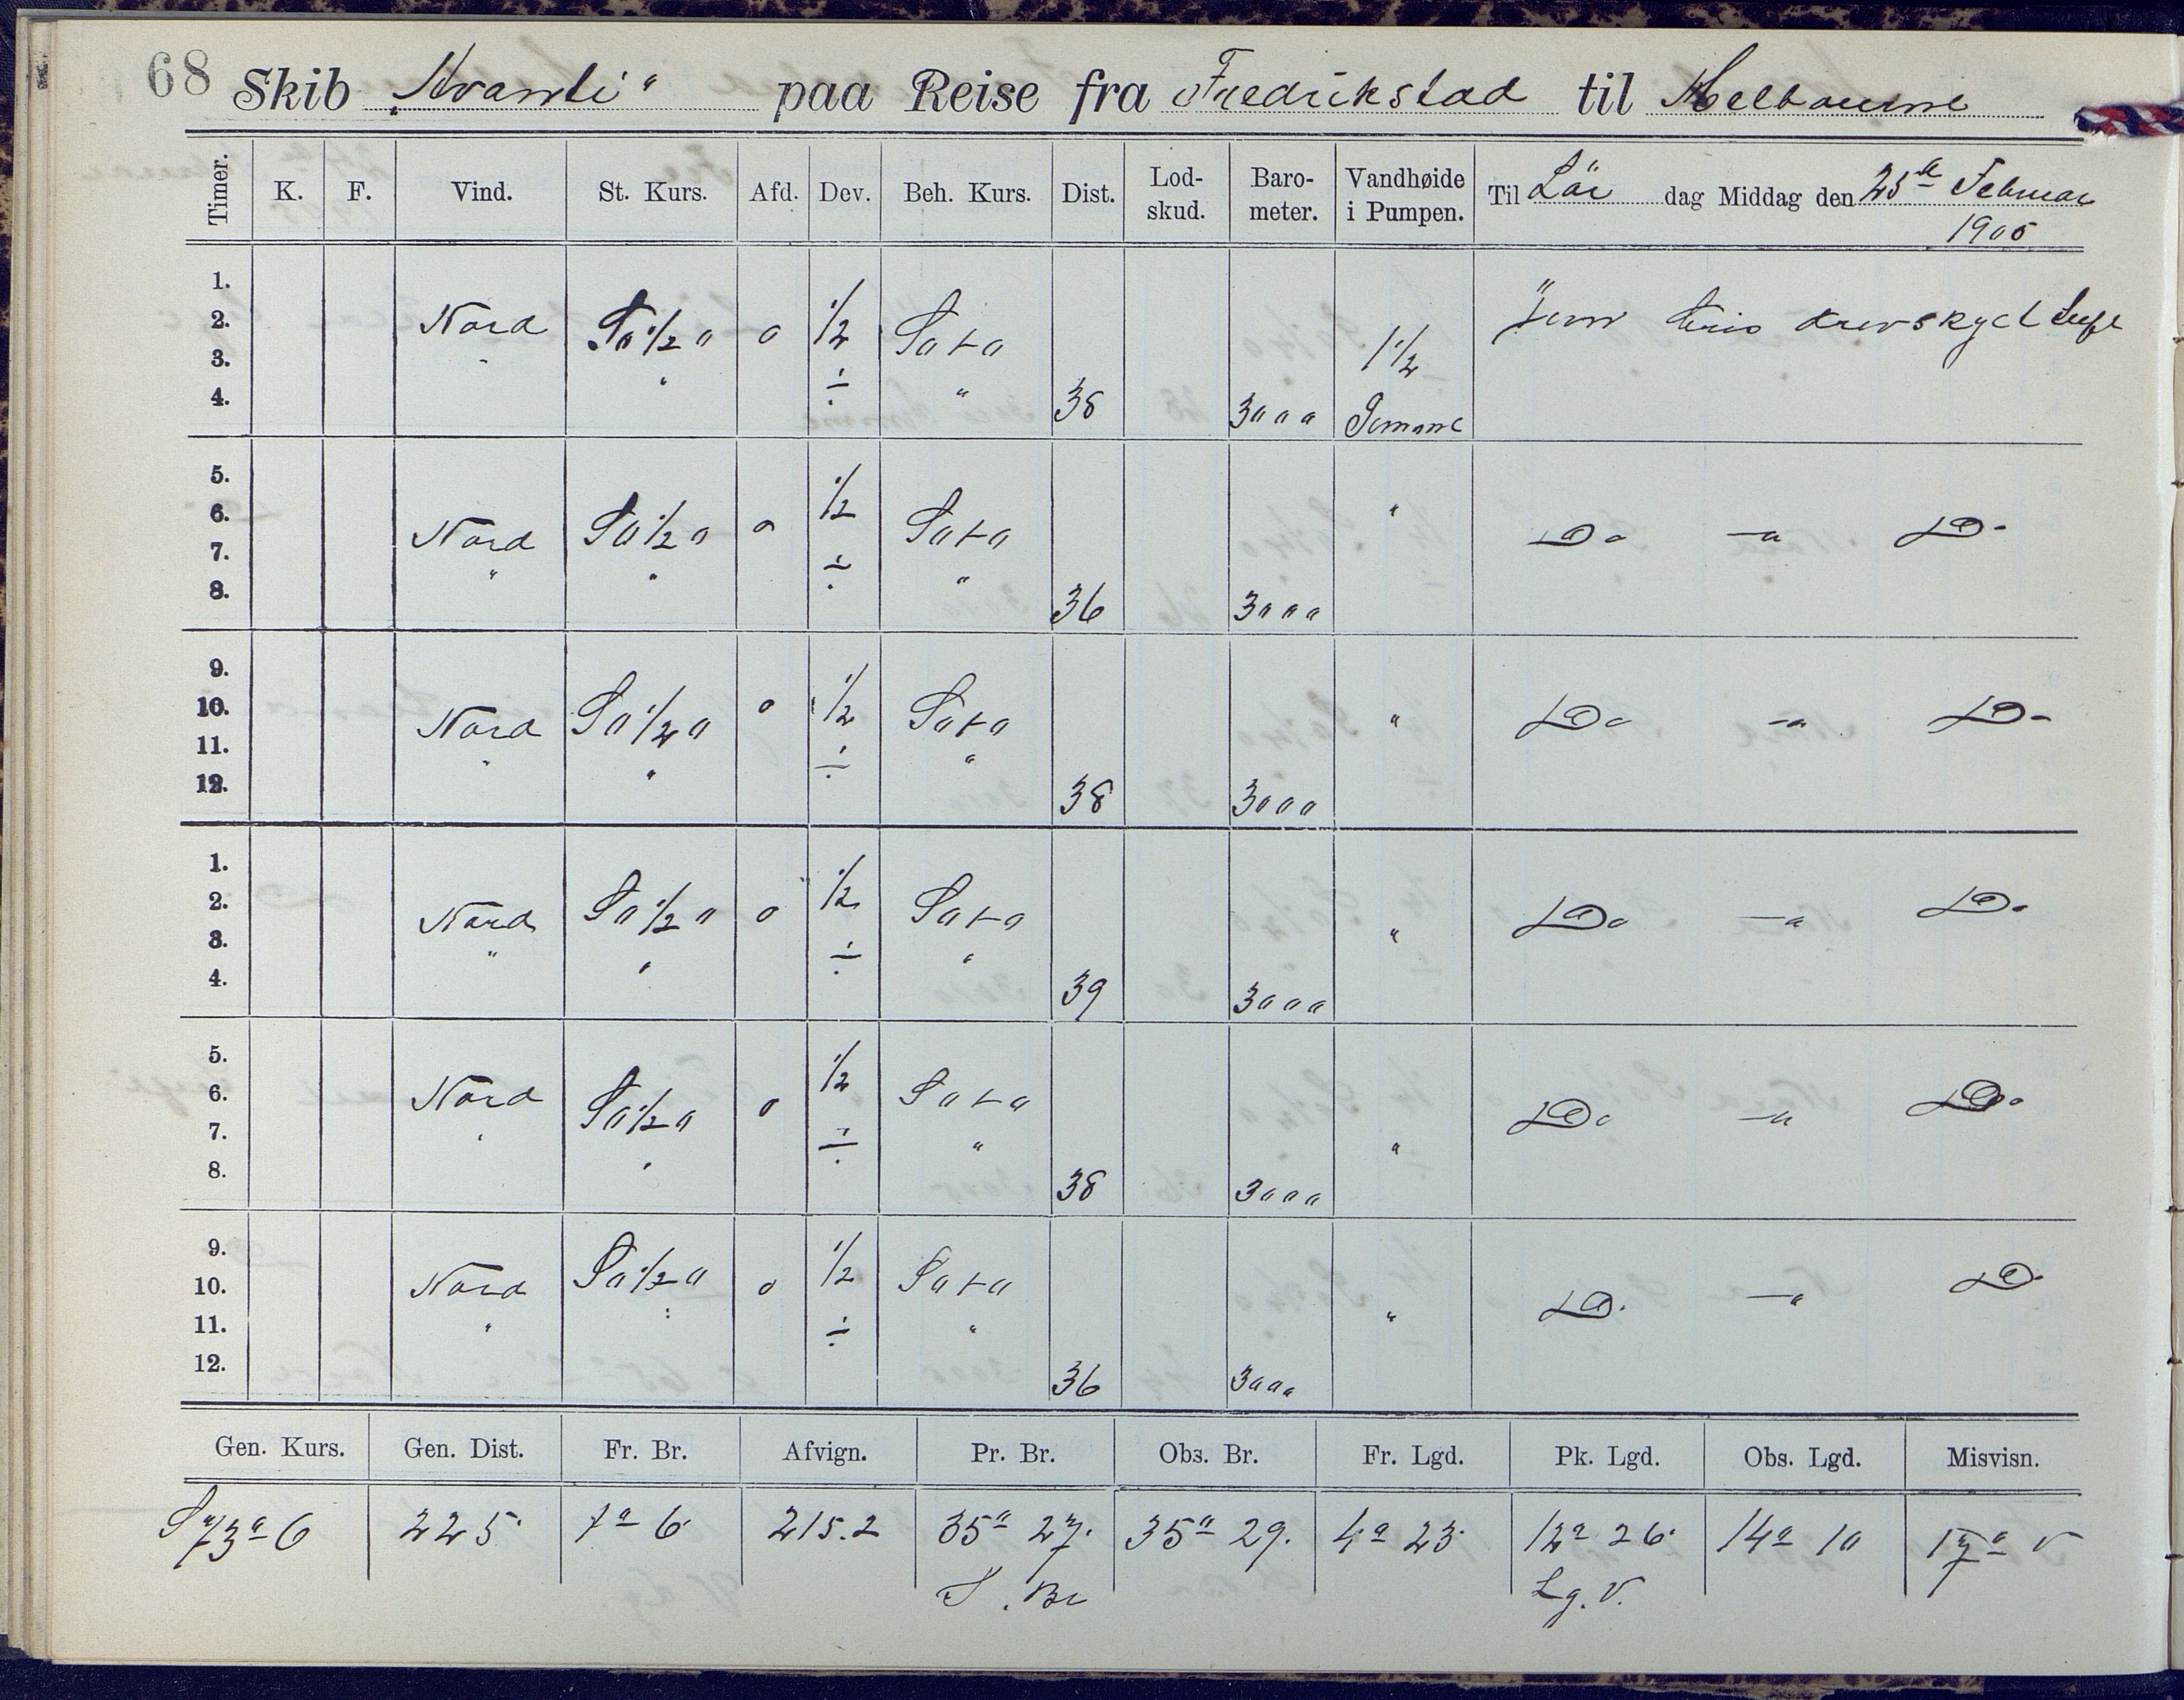 68 Skib "Avanti" paa Reise fra Fredrikstad til Melbourne
Timer. K. F. Vind. St. Kurs. Afd. Dev. Beh. Kurs. Dist. Lod-skud. Baro-meter. Vandhøide i Pumpen. Til Lör dag Middag den 25de Februar
1905
1.
2. Nord So 1/2 o o 1/2 Soto Jevn bris skyet Luft
3. " 1 1/2
4. " ÷ " 38 3000
5.
6. Nord So 1/2 o o 1/2 Soto " Do —o Do
7.
8. " " ÷ " 36 3000
9.
10. Nord So 1/2 o o 1/2 Soto " Do —o Do
11. " " ÷ "
12. 38 3000
1.
2. Nord So 1/2 o o 1/2 Soto " Do —o Do
3. " " ÷ "
4. 39 3000
5.
6. Nord So 1/2 o o 1/2 Soto Do —o Do
7. " " ÷ " "
8. 38 3000
9.
10. Nord So 1/2 o o 1/2 Soto " Do —o Do
11. " " ÷ "
12. 36 3000
Gen. Kurs. Gen. Dist. Fr. Br. Afvign. Pr. Br. Obs. Br. Fr. Lgd. Pk. Lgd. Obs. Lgd. Misvisn.
S 73° 6 225 1° 6 215.2 35° 27. 35° 29. 4° 23 12° 26 14° 10 17° V
S. Br Lg. V.